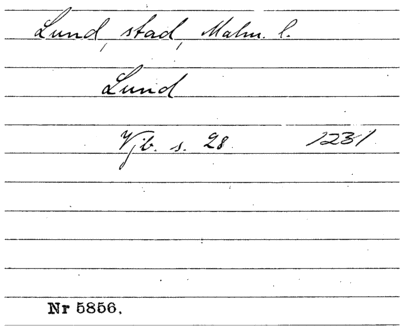 Lund, stad, Malm. l.
Lund
Vjb. s. 28 1231
Nr 5856.